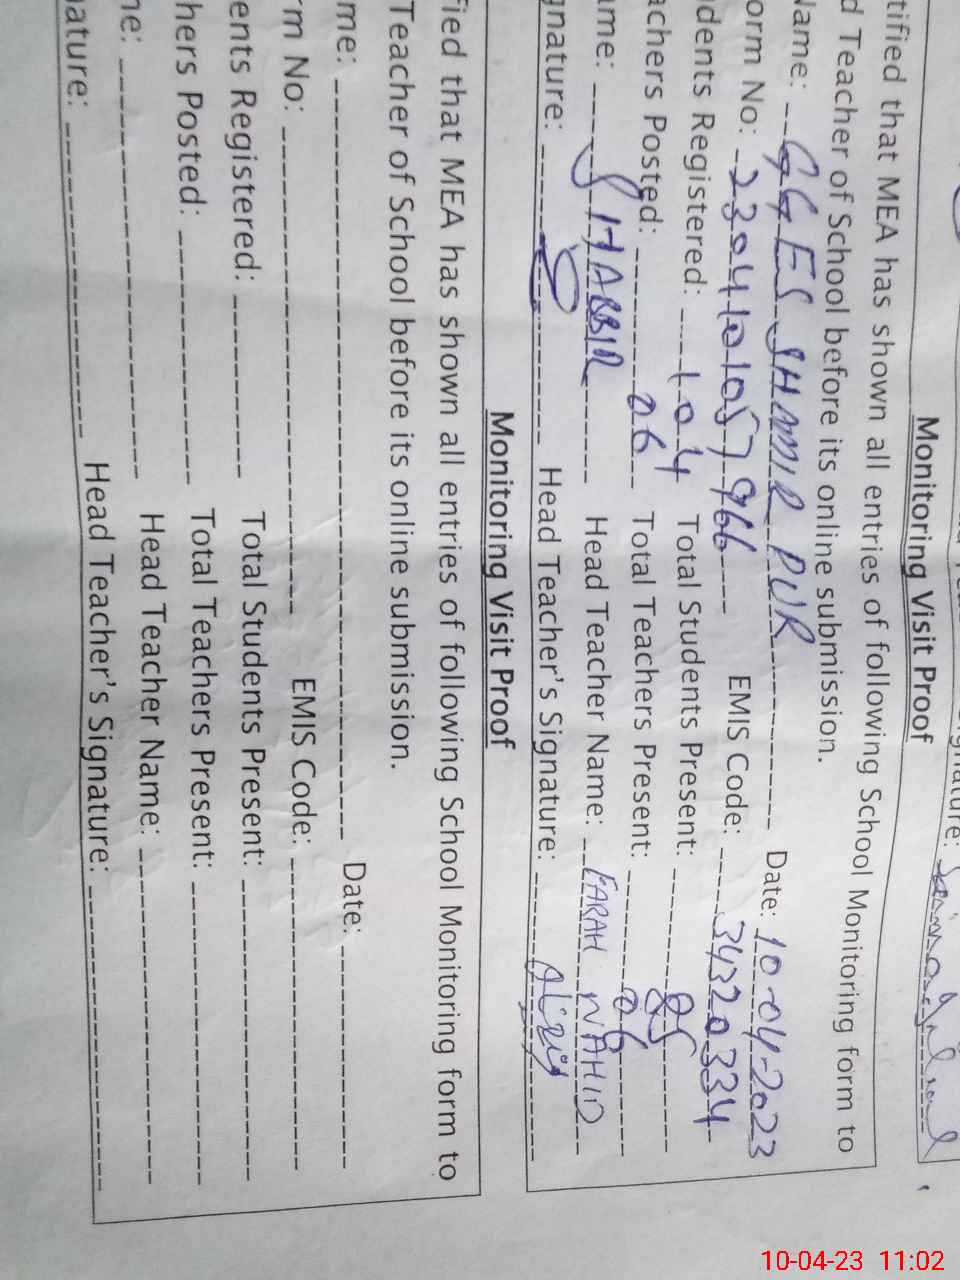 gnature:
Monitoring Visit Proof
tified that MEA has shown all entries of following School Monitoring form to
d Teacher of School before its online submission.
Name: GGES SHAMIR PUR Date: 10-04-2023
orm No: 2304101057966 EMIS Code: 34320334
dents Registered: 104 Total Students Present: 85
achers Posted: 06 Total Teachers Present: 06
ame: SHABBIR Head Teacher Name: FARAH NAHID
gnature: Head Teacher's Signature:
Monitoring Visit Proof
fied that MEA has shown all entries of following School Monitoring form to
Teacher of School before its online submission.
me: Date:
rm No: EMIS Code:
ents Registered: Total Students Present:
hers Posted: Total Teachers Present:
ne: Head Teacher Name:
nature: Head Teacher's Signature:
10-04-23 11:02